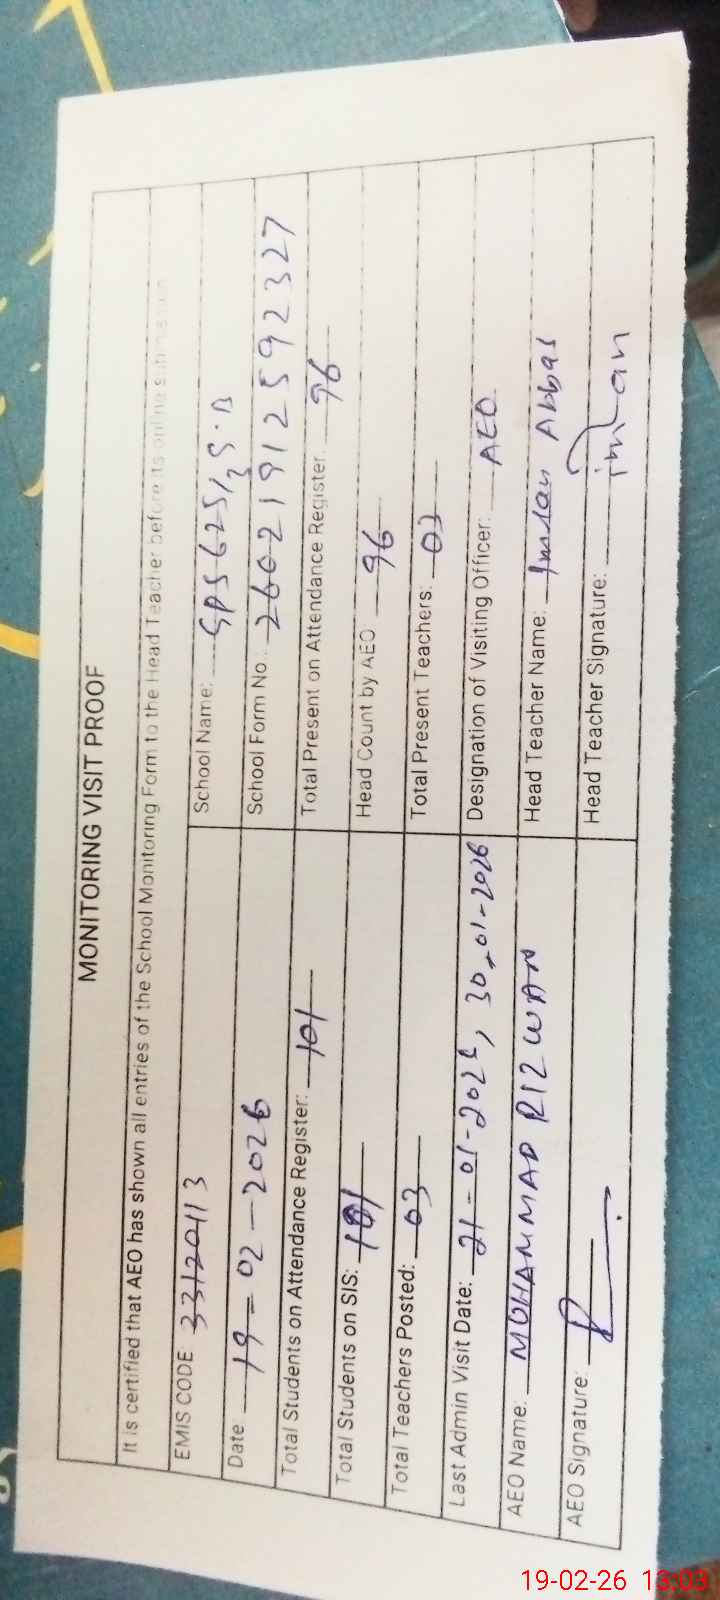 MONITORING VISIT PROOF
It is certified that AEO has shown all entries of the School Monitoring Form to the Head Teacher before its online submission
EMIS CODE 33120113 School Name: GPS 625/
Date 19-02-2026 School Form No.: 26021912592327
Total Students on Attendance Register: 101 Total Present on Attendance Register: 96
Total Students on SIS: 101 Head Count by AEO 96
Total Teachers Posted: 03 Total Present Teachers: 03
Last Admin Visit Date: 21-01-2026, 30-01-2026 Designation of Visiting Officer: AEO
AEO Name: MUHAMMAD RIZWAN Head Teacher Name: Imran Abbas
AEO Signature: Head Teacher Signature: imran
19-02-26 13:03